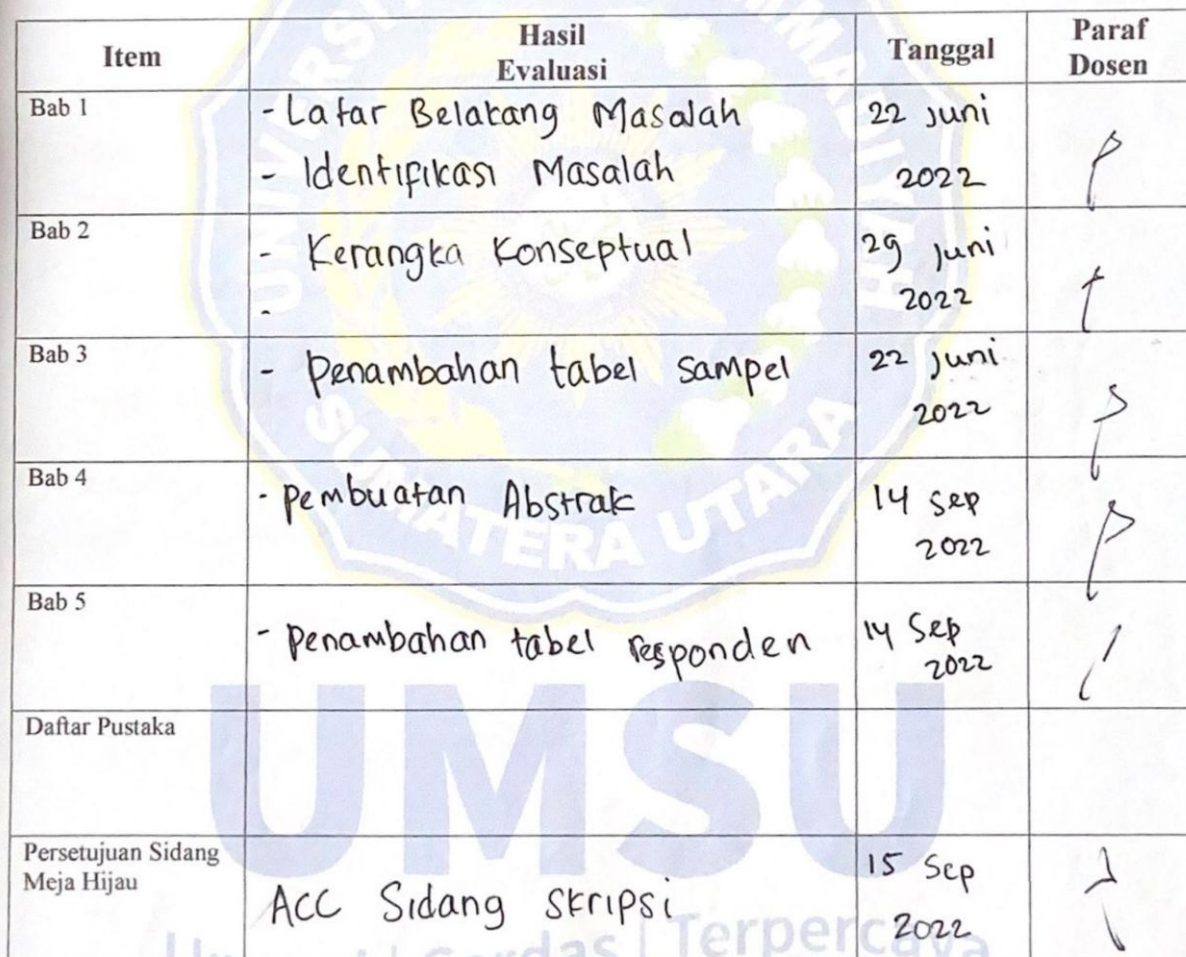 Item
Hasil
Evaluasi
Tanggal
Paraf
Dosen
Bab 1
- Latar Belakang Masalah
- Identifikasi Masalah
22 Juni
2022
Bab 2
- Kerangka Konseptual
-
29 Juni
2022
Bab 3
- Penambahan tabel sampel
22 Juni
2022
Bab 4
- Pembuatan Abstrak
14 Sep
2022
Bab 5
- Penambahan tabel responden
14 Sep
2022
Daftar Pustaka
Persetujuan Sidang
Meja Hijau
ACC Sidang Skripsi
15 Sep
2022
SUMATERA UTARA
UMSU
Cerdas | Terpercaya